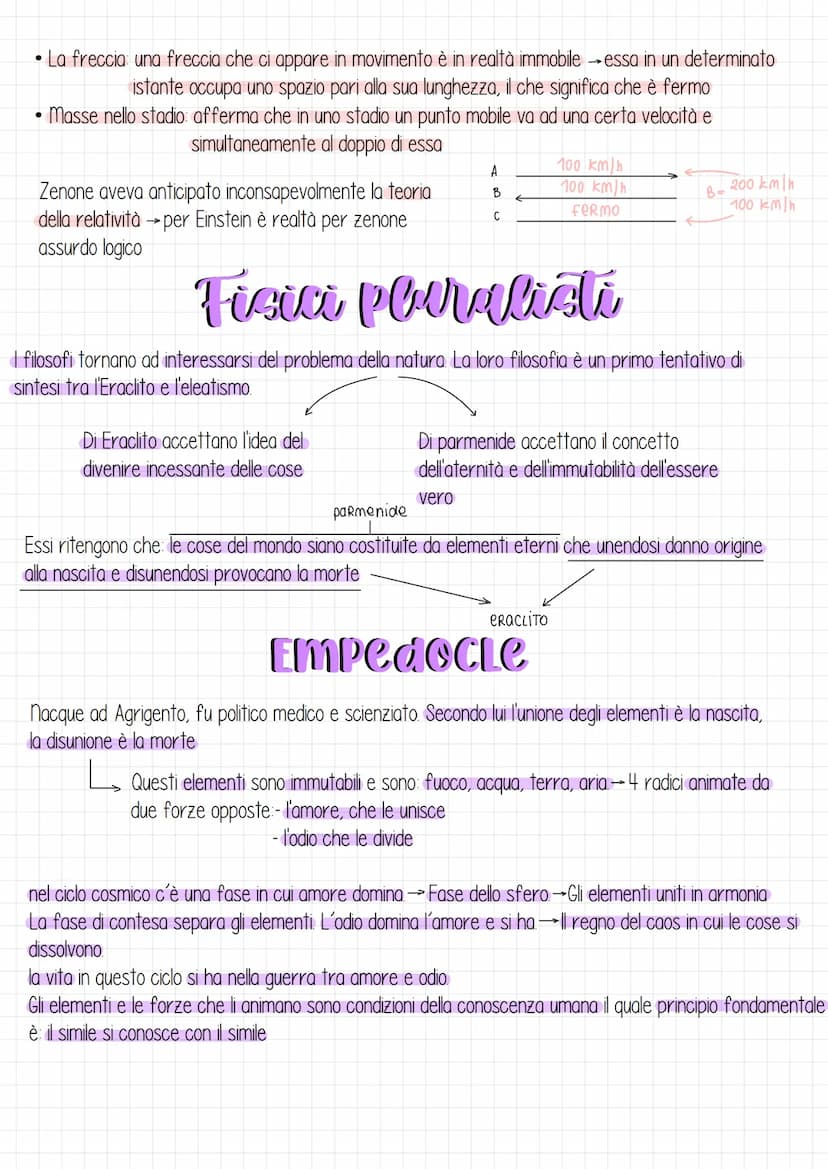 • La freccia: una freccia che ci appare in movimento è in realtà immobile → essa in un determinato
istante occupa uno spazio pari alla sua lunghezza, il che significa che è fermo
• Masse nello stadio: afferma che in uno stadio un punto mobile va ad una certa velocità e
simultaneamente al doppio di essa
Zenone aveva anticipato inconsapevolmente la teoria
della relatività → per Einstein è realtà per zenone
assurdo logico
A 100 km/h
B 100 km/h
C fermo
B= 200 km/h
100 km/h
Fisici pluralisti
I filosofi tornano ad interessarsi del problema della natura. La loro filosofia è un primo tentativo di
sintesi tra l'Eraclito e l'eleatismo.
Di Eraclito accettano l'idea del
divenire incessante delle cose
Di parmenide accettano il concetto
dell'aternità e dell'immutabilità dell'essere
vero
parmenide
Essi ritengono che: le cose del mondo siano costituite da elementi eterni che unendosi danno origine
alla nascita e disunendosi provocano la morte
eraclito
Empedocle
Nacque ad Agrigento, fu politico medico e scienziato. Secondo lui l'unione degli elementi è la nascita,
la disunione è la morte
Questi elementi sono immutabili e sono: fuoco, acqua, terra, aria → 4 radici animate da
due forze opposte:- l'amore, che le unisce
- l'odio che le divide
nel ciclo cosmico c'è una fase in cui amore domina → Fase dello sfero → Gli elementi uniti in armonia
La fase di contesa separa gli elementi. L'odio domina l'amore e si ha → Il regno del caos in cui le cose si
dissolvono.
la vita in questo ciclo si ha nella guerra tra amore e odio.
Gli elementi e le forze che li animano sono condizioni della conoscenza umana il quale principio fondamentale
è: il simile si conosce con il simile